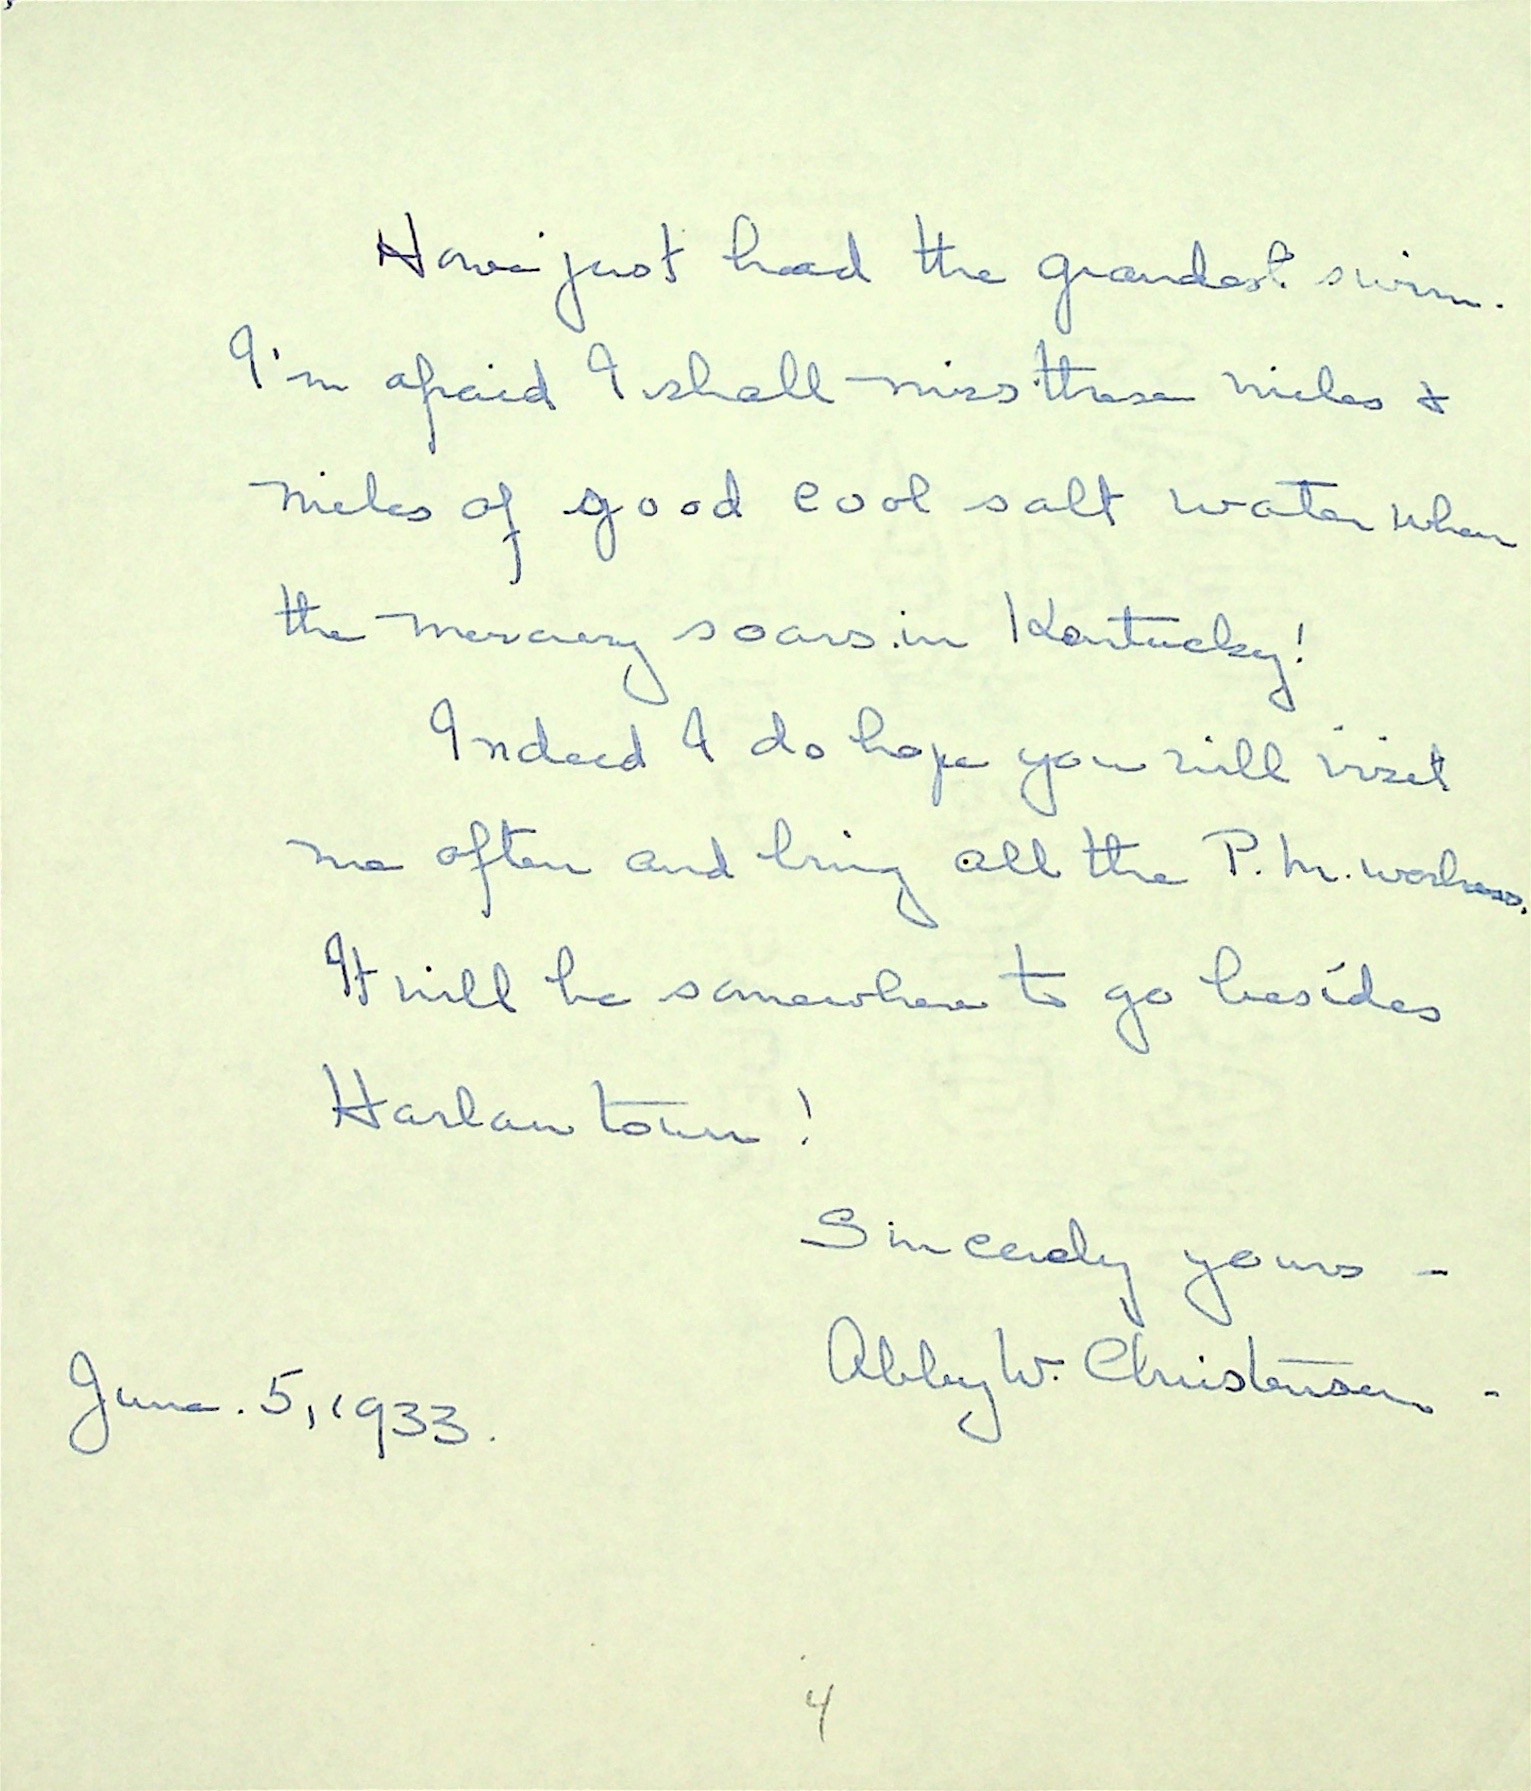 Have just had the grandest swim.
I'm afraid I shall miss these miles &
miles of good cool salt water when
the mercury soars in Kentucky!
Indeed I do hope you will visit
me often and bring all the P.M. workers.
It will be somewhere to go besides
Harlan town!
Sincerely yours -
Abby W. Christensen -
June. 5, 1933.
4